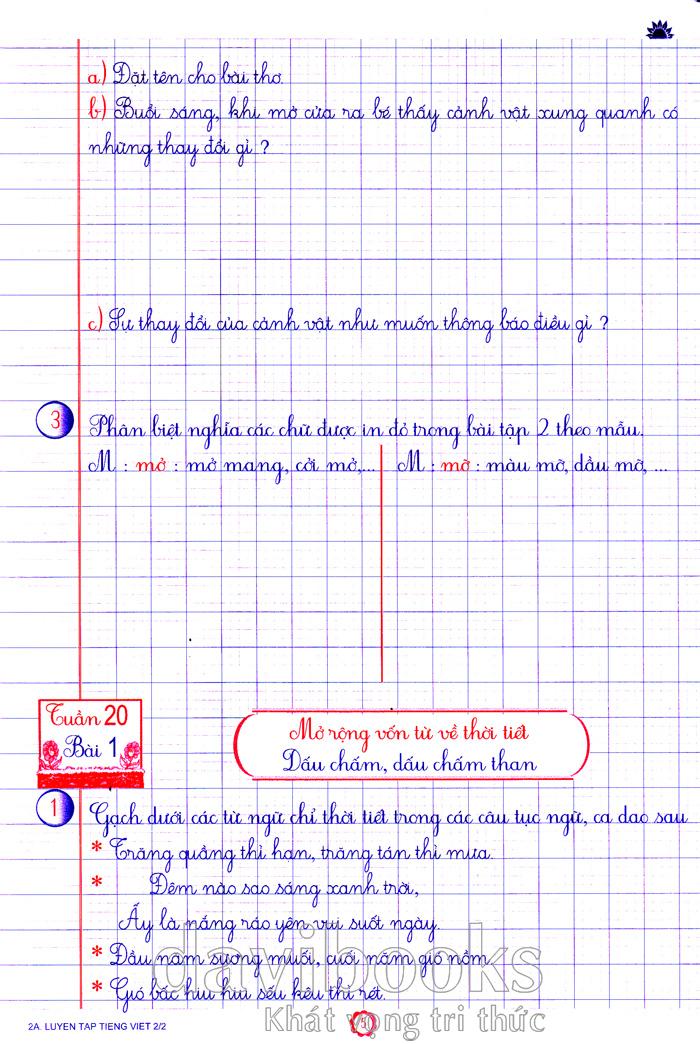 a) Đặt tên cho bài thơ.
b) Buổi sáng, khi mở cửa ra bé thấy cảnh vật xung quanh có
những thay đổi gì ?
c) Sự thay đổi của cảnh vật như muốn thông báo điều gì ?
3 Phân biệt nghĩa các chữ được in đỏ trong bài tập 2 theo mẫu.
M : mở : mở mang, cởi mở,... M : mỡ : màu mỡ, dầu mỡ, ...
Tuần 20
Bài 1
Mở rộng vốn từ về thời tiết
Dấu chấm, dấu chấm than
1 Gạch dưới các từ ngữ chỉ thời tiết trong các câu tục ngữ, ca dao sau
* Trăng quầng thì hạn, trăng tán thì mưa.
* Đêm nào sao sáng xanh trời,
Ấy là nắng ráo yên vui suốt ngày.
* Đầu năm sương muối, cuối năm gió nồm
* Gió bấc hiu hiu sếu kêu thì rét.
davibooks
Khát vọng tri thức
2A. LUYEN TAP TIENG VIET 2/2